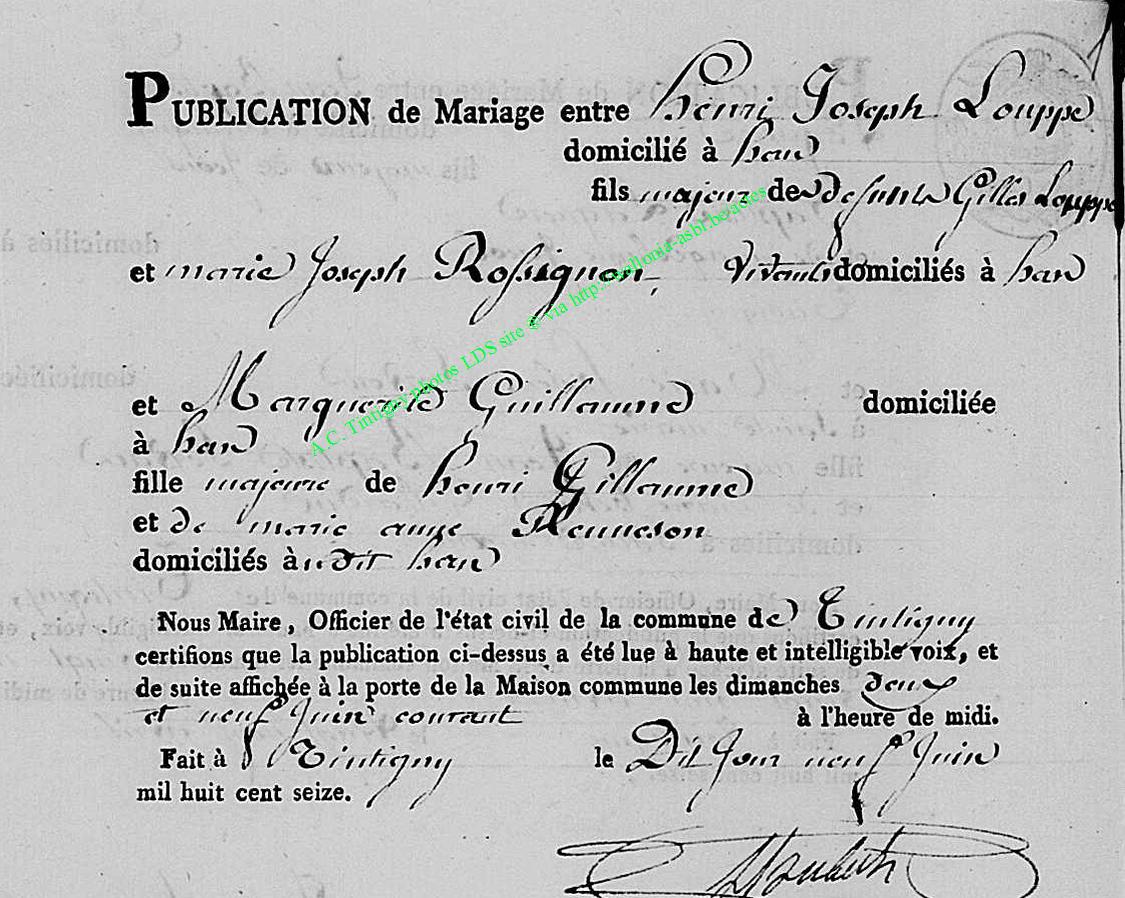 PUBLICATION de Mariage entre henri Joseph Louppe
domicilié à han
fils majeur de defunts Gilles Louppe
et marie Joseph Rossignon, vivants domiciliés à han
et Marguerite Guillaume domiciliée
à han
fille majeure de henri Gillaume
et de marie anne Henneson
domiciliés à udit han
Nous Maire, Officier de l'état civil de la commune de Tintigny
certifions que la publication ci-dessus a été lue à haute et intelligible voix, et
de suite affichée à la porte de la Maison commune les dimanches deux
et neuf Juin courant à l'heure de midi.
Fait à Tintigny le Dit Jour neuf Juin
mil huit cent seize.
A.C. Tintigny photos LDS site © via http://wallonia-asbl.be/actes